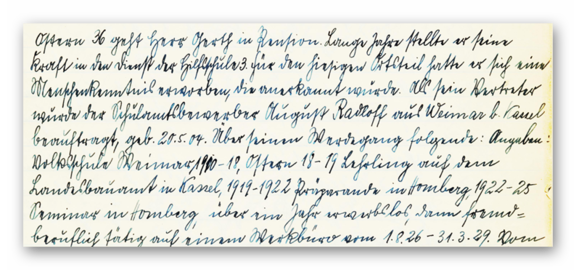 Ostern 36 geht Herr Gerth in Pension. Lange Jahre stellte er seine
Kraft in den Dienst der Hilfsschule 3. Für den hiesigen Ortsteil hatte er sich eine
Menschenkenntnis erworben, die anerkannt wurde. Als sein Vertreter
wurde der Schulamtsbewerber August Radloff aus Weimar b. Kassel
beauftragt, geb. 20.5.04. Über seinen Werdegang folgende: Angaben:
Volksschule Weimar, 1910-18, Ostern 18-19 Lehrling auf dem
Landesbauamt in Kassel, 1919-1922 Präparande in Homberg, 1922-25
Seminar in Homberg, über ein Jahr erwerbslos dann fremd=
beruflich tätig auf einem Werkbüro vom 1.8.26-31.3.29. Vom